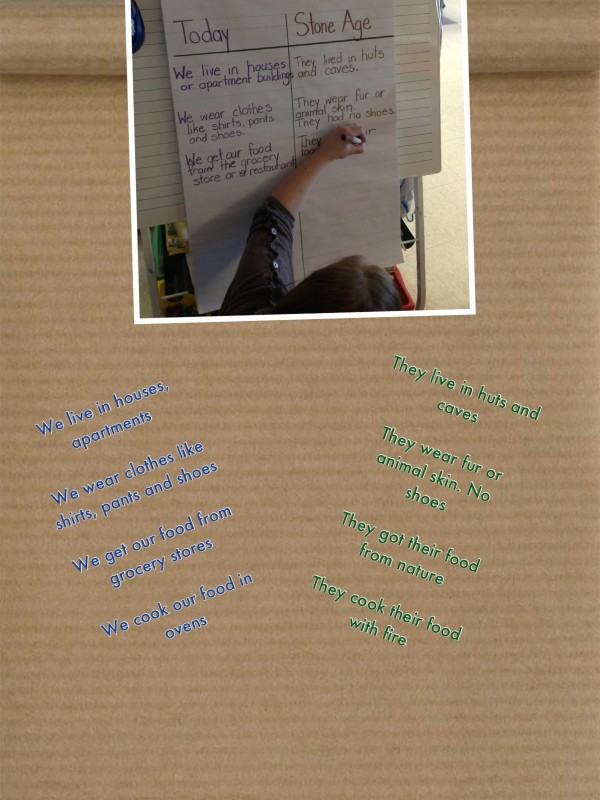 Today
Stone Age
We live in houses
or apartment buildings
They lived in huts
and caves.
We wear clothes
like shirts, pants
and shoes.
They wear fur or
animal skin.
They had no shoes.
We get our food
from the grocery
store or a restaurant
They
We live in houses,
apartments
We wear clothes like
shirts, pants and shoes
We get our food from
grocery stores
We cook our food in
ovens
They live in huts and
caves
They wear fur or
animal skin. No
shoes
They got their food
from nature
They cook their food
with fire